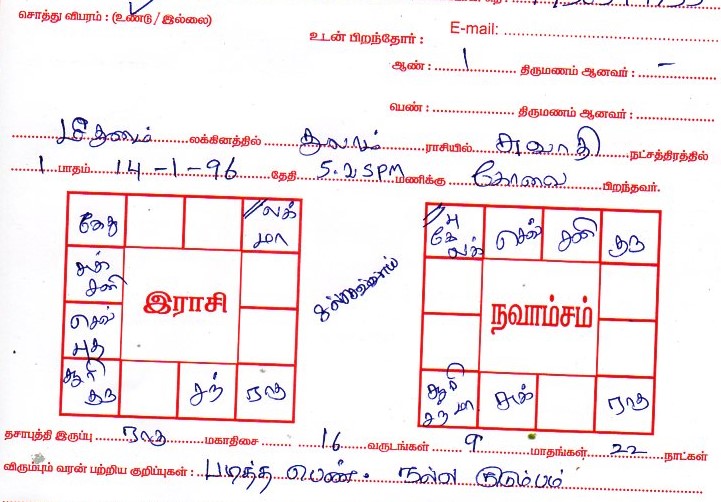 சொத்து விபரம் : (உண்டு / இல்லை)
E-mail:
உடன் பிறந்தோர் :
ஆண் : 1 திருமணம் ஆனவர் : -
பெண் : திருமணம் ஆனவர் :
மிதுனம் லக்கினத்தில் துலாம் ராசியில் சுவாதி நட்சத்திரத்தில்
1 பாதம் 14-1-96 தேதி 5.25PM மணிக்கு கோவை பிறந்தவர்.
கேது லக் மா
சுக் சனி
இராசி
செவ் புத
சூரி குரு சந் ராகு
பு கேது லக் செவ் சனி குரு
நவாம்சம்
சூரி சந் மா சுக் ராகு
தசாபுத்தி இருப்பு ராகு மகாதிசை 16 வருடங்கள் 9 மாதங்கள் 22 நாட்கள்
விரும்பும் வரன் பற்றிய குறிப்புகள் : படித்த பெண். நல்ல குடும்பம்